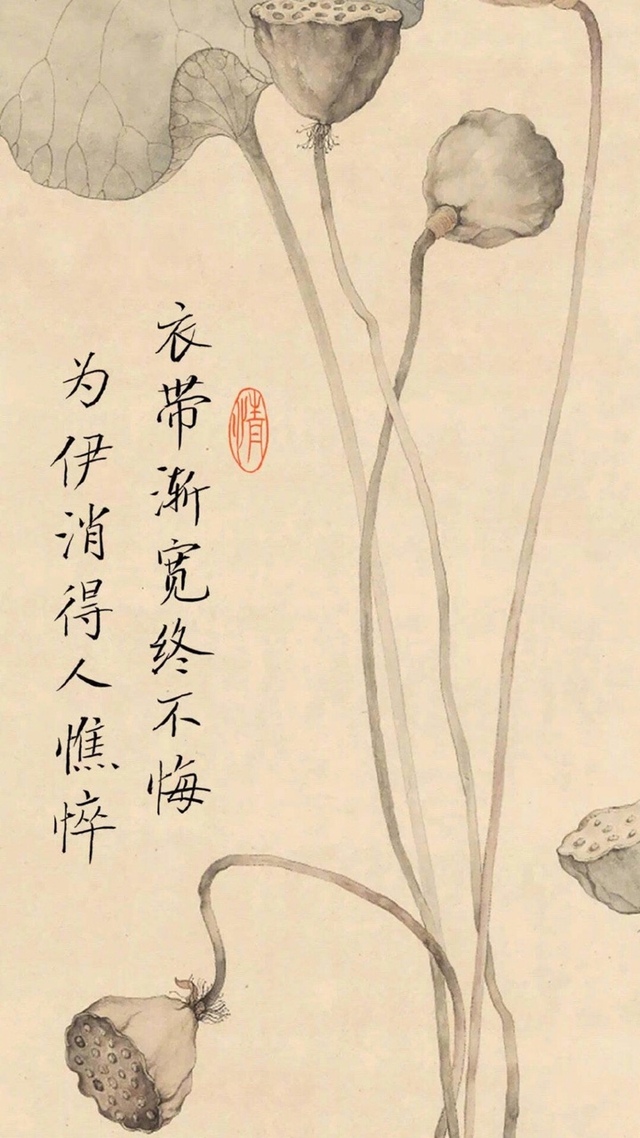 衣带渐宽终不悔
为伊消得人憔悴
情